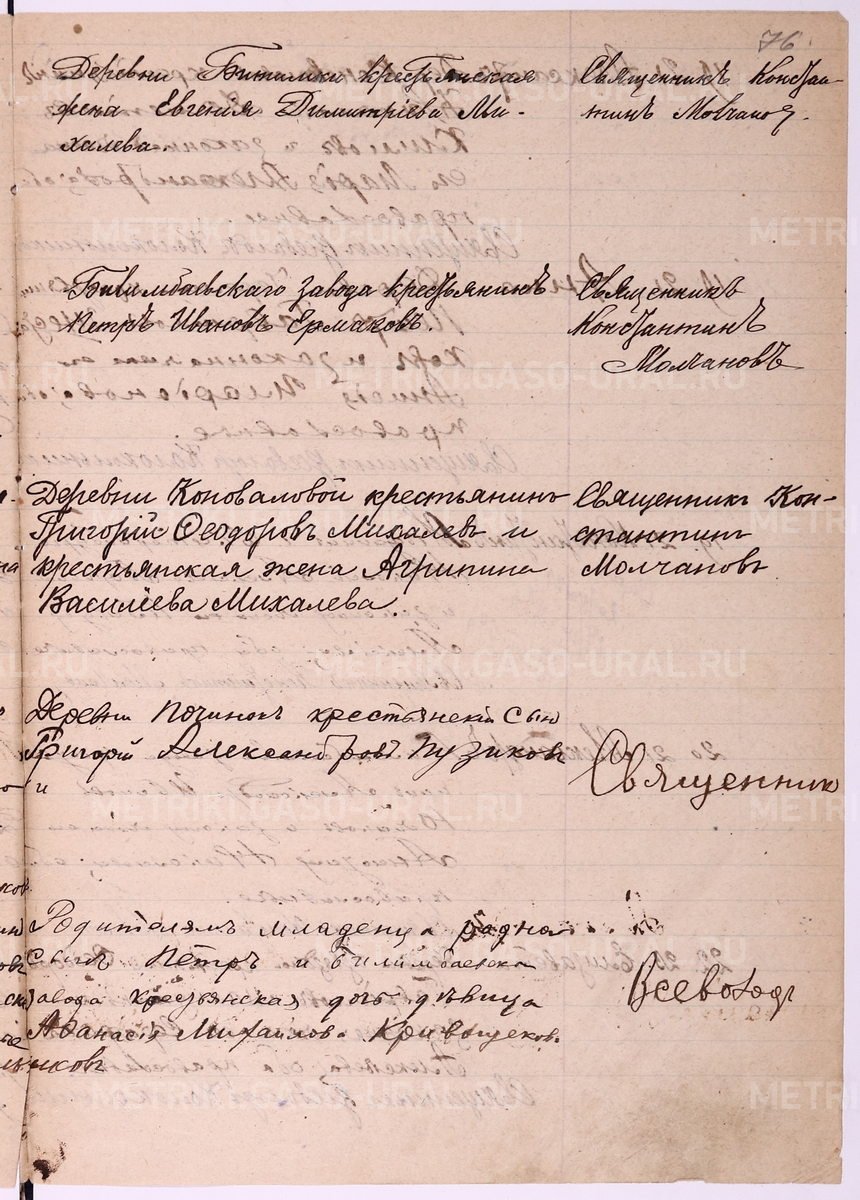 76
Деревни Битимки крестьянская
жена Евгения Димитріева Ми-
халева.
Священникъ Констан-
тинъ Молчановъ.
Билимбаевскаго завода крестьянинъ
Петръ Ивановъ Ермаковъ.
Священникъ
Константинъ
Молчановъ
Деревни Коноваловой крестьянинъ
Григорій Ѳеодоровъ Михалевъ и
крестьянская жена Агрипина
Василіева Михалева.
Священникъ Кон-
стантинъ
Молчановъ
Деревни Починокъ крестьянскій сынъ
Григорій Александровъ Пузиковъ
и
Священник
Родителямъ младенца родной
сынъ Петръ и Билимбаевска
завода крестьянская дочь дѣвица
Аѳанасія Михайлова Кривощекова
Всеволодъ
METRIKI.GASO-URAL.RU